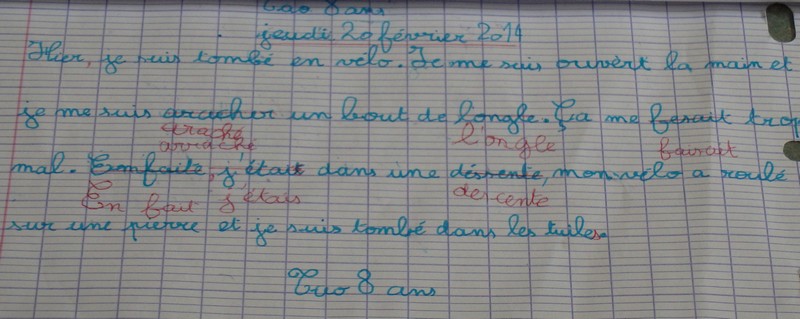 8 ans
jeudi 20 février 2014
Hier, je suis tombé en vélo. Je me suis ouvert la main et
je me suis aracher un bout de longle. Ça me fesait trop
l'ongle faisait
arraché
mal. Emfaite, j'était dans une déssente, mon vélo a roulé
En fait j'étais descente
sur une pierre et je suis tombé dans les tuiles.
8 ans